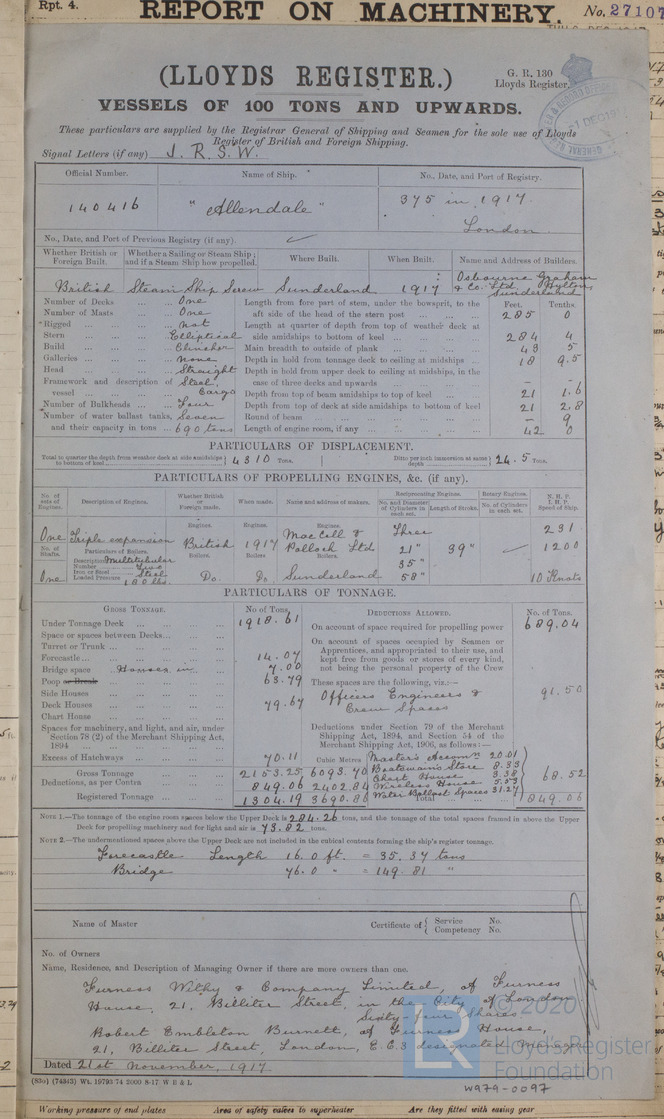 Rpt. 4.
REPORT ON MACHINERY. No. 27107
(LLOYDS REGISTER.)
G. R. 130
Lloyds Register.
VESSELS OF 100 TONS AND UPWARDS.
These particulars are supplied by the Registrar General of Shipping and Seamen for the sole use of Lloyds
Register of British and Foreign Shipping.
Signal Letters (if any) J. R. S. W.
Official Number. Name of Ship. No., Date, and Port of Registry.
140416 "Allendale" 375 in 1917.
London
No., Date, and Port of Previous Registry (if any).
Whether British or Foreign Built. Whether a Sailing or Steam Ship; and if a Steam Ship how propelled. Where Built. When Built. Name and Address of Builders.
British Steam Ship Screw Sunderland 1917 Osbourne Graham
& Co. Ltd Hylton
Sunderland
Number of Decks ... One
Number of Masts ... One
Rigged ... Not
Stern ... Elliptical
Build ... Clincher
Galleries ... None
Head ... Straight
Framework and description of vessel ... Steel, Cargo
Number of Bulkheads ... Four
Number of water ballast tanks, Seven
and their capacity in tons ... 690 tons
Feet. Tenths.
Length from fore part of stem, under the bowsprit, to the
aft side of the head of the stern post ... 285 0
Length at quarter of depth from top of weather deck at
side amidships to bottom of keel ... 284 4
Main breadth to outside of plank ... 43 5
Depth in hold from tonnage deck to ceiling at midships ... 18 9.5
Depth in hold from upper deck to ceiling at midships, in the
case of three decks and upwards ... – –
Depth from top of beam amidships to top of keel ... 21 1.6
Depth from top of deck at side amidships to bottom of keel 21 2.8
Round of beam ... – 9
Length of engine room, if any ... 42 0
PARTICULARS OF DISPLACEMENT.
Total to quarter the depth from weather deck at side amidships to bottom of keel 4310 Tons. Ditto per inch immersion at same depth 24.5 Tons.
PARTICULARS OF PROPELLING ENGINES, &c. (if any).
No. of sets of Engines. Description of Engines. Whether British or Foreign made. When made. Name and address of makers. Reciprocating Engines. Rotary Engines. N. H. P.
I. H. P.
Speed of Ship.
No. and Diameter of Cylinders in each set. Length of Stroke. No. of Cylinders in each set.
Engines. Engines. Engines.
One Triple expansion British 1917 MacColl & Pollock Ltd Three 231
21" 39" 1200
35"
58"
No. of Shafts. Particulars of Boilers. Boilers. Boilers. Boilers.
Description Multitubular
Number
Iron or Steel Steel
Loaded Pressure 180 lbs.
One Do. Do. Sunderland 10 Knots
PARTICULARS OF TONNAGE.
GROSS TONNAGE. No of Tons.
Under Tonnage Deck ... 1918.61
Space or spaces between Decks...
Turret or Trunk ...
Forecastle ... 14.07
Bridge space Houses in ... 7.00
Poop or Break ... 63.79
Side Houses
Deck Houses ... 79.67
Chart House ...
Spaces for machinery, and light, and air, under
Section 78 (2) of the Merchant Shipping Act,
1894 ...
Excess of Hatchways ... 70.11
Cubic Metres
Gross Tonnage 2153.25 6093.70
Deductions, as per Contra ... 849.06 2402.84
Registered Tonnage ... 1304.19 3690.86
DEDUCTIONS ALLOWED. No. of Tons.
On account of space required for propelling power 689.04
On account of spaces occupied by Seamen or
Apprentices, and appropriated to their use, and
kept free from goods or stores of every kind,
not being the personal property of the Crew
These spaces are the following, viz.:—
Officers Engineers &
Crew Spaces 91.50
Deductions under Section 79 of the Merchant
Shipping Act, 1894, and Section 54 of the
Merchant Shipping Act, 1906, as follows:—
Master's Accomn. 20.01
Boatswain's Store 8.33
Chart House 3.38
Wireless House 5.53
Water Ballast Spaces 31.27
68.52
Total ... 849.06
NOTE 1.—The tonnage of the engine room spaces below the Upper Deck is 284.26 tons, and the tonnage of the total spaces framed in above the Upper
Deck for propelling machinery and for light and air is 73.82 tons.
NOTE 2.—The undermentioned spaces above the Upper Deck are not included in the cubical contents forming the ship's register tonnage.
Forecastle Length 16.0 ft. = 35.37 tons
Bridge 76.0 " = 149.81 "
Name of Master Certificate of { Service No.
Competency No.
No. of Owners
Name, Residence, and Description of Managing Owner if there are more owners than one.
Furness Withy & Company Limited, of Furness
House, 21, Billiter Street, in the City of London
Sixty-four Shares.
Robert Embleton Burnett, of Furness House,
21, Billiter Street, London, E.C.3 designated
Dated 21st November, 1917.
(83c) (74343) Wt. 19793/74 2000 8-17 W E & L
W979-0097
LR
© 2020
Lloyd's Register
Foundation
Working pressure of end plates Area of safety valves to superheater Are they fitted with easing gear